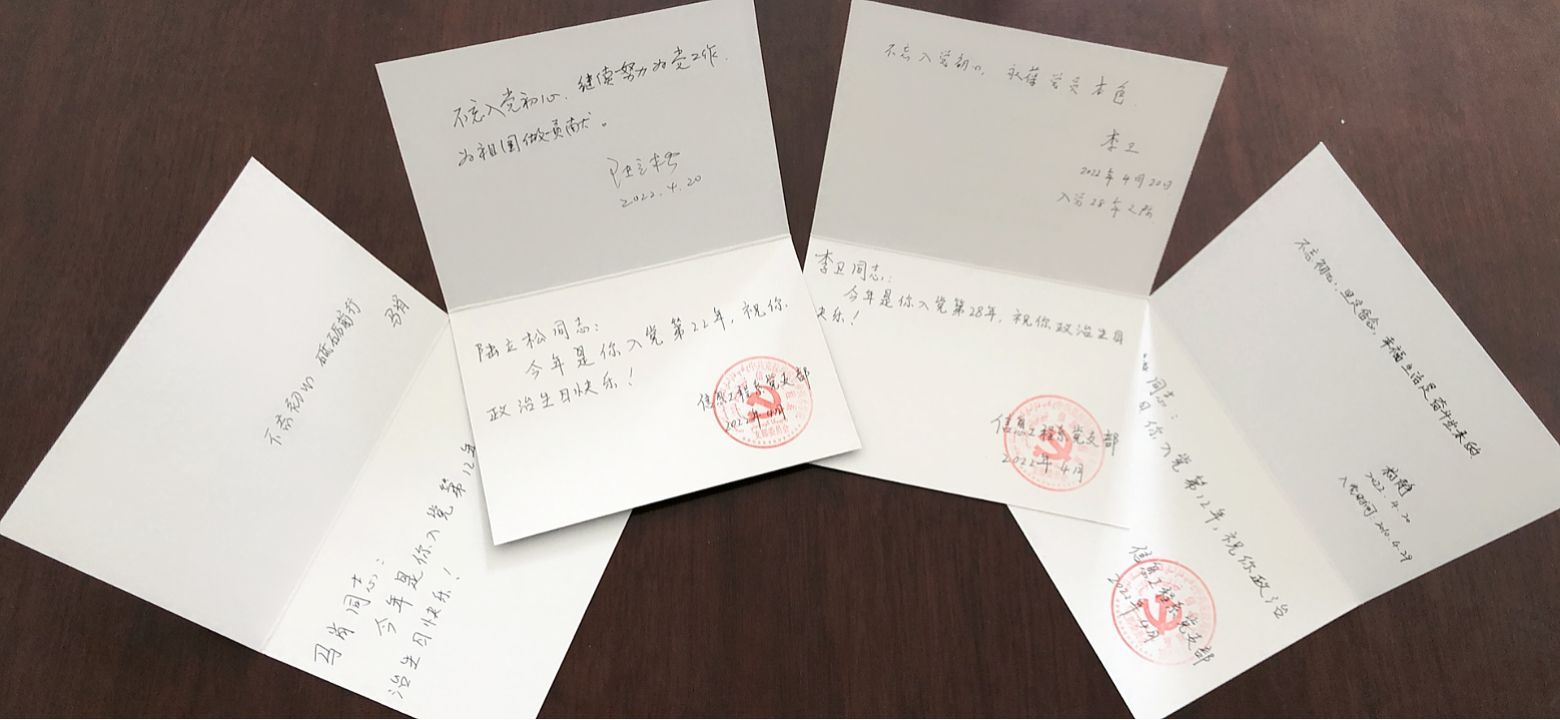 不忘初心 砥砺前行
马肖
马肖同志：
今年是你入党第12年
治生日快乐！
不忘入党初心，继续努力为党工作，
为祖国做贡献。
陆立松
2022.4.20
陆立松同志：
今年是你入党第22年，祝你
政治生日快乐！
信息工程系党支部
2022年4月
不忘入党初心，永葆党员本色
李卫
2022年4月20日
入党28年之际
李卫同志：
今年是你入党第28年，祝你政治生日
快乐！
信息工程系党支部
2022年4月
不忘初心，坚定信念，幸福生活是奋斗出来的
2022.4.20
入党时间：2010.4.29
同志：
你入党第12年，祝你政治
信息工程系党支部
2022年4月